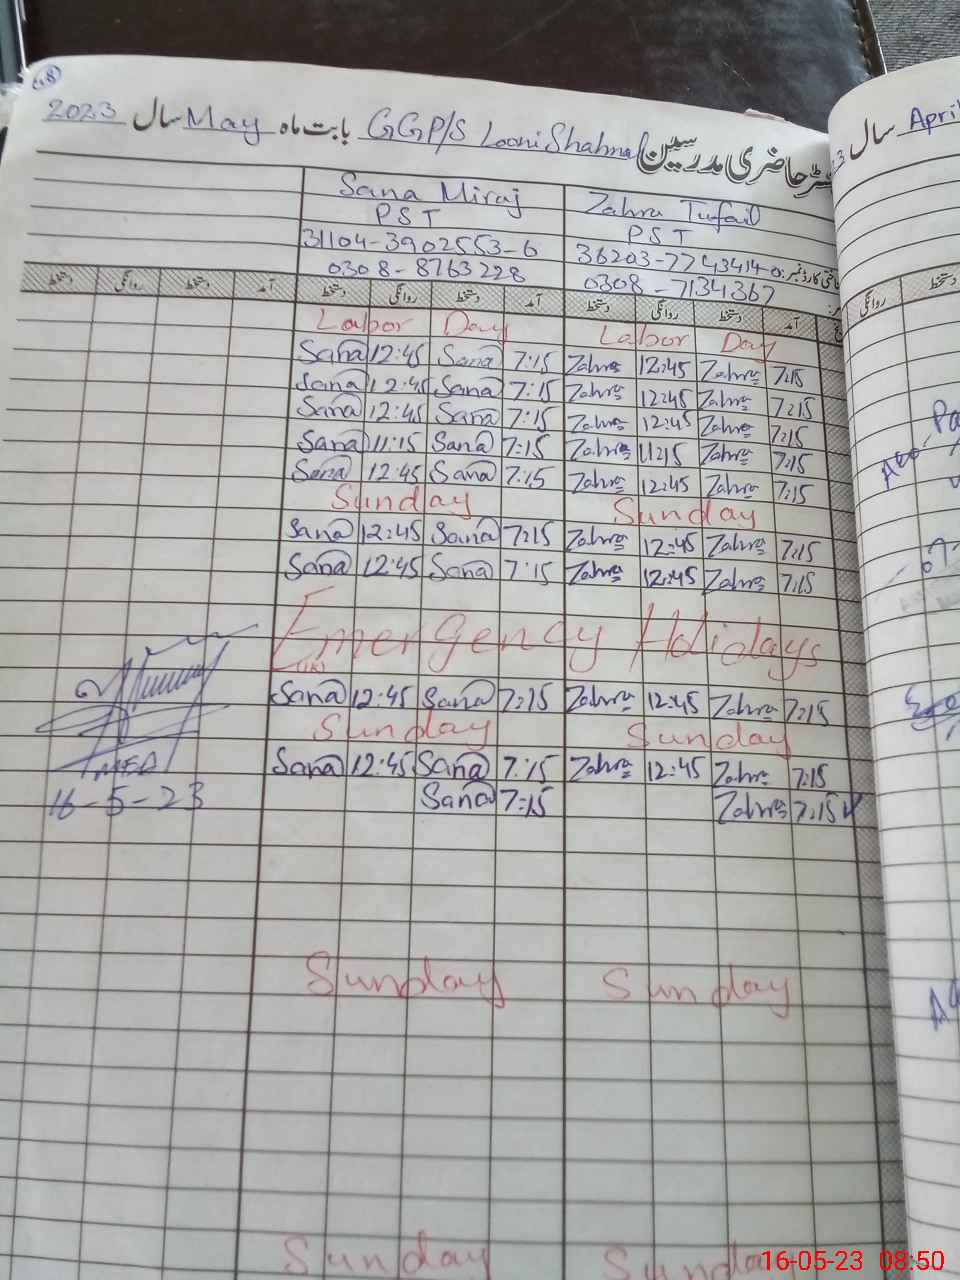 68
2023 سال May بابت ماہ GGP/S Looni Shahnal حاضری مدرسین
Sana Miraj Zahra Tufail
PST PST
31104-3902553-6
0308-8763228 0308-7134367
دستخط روانگی دستخط آمد دستخط روانگی دستخط آمد دستخط روانگی دستخط آمد
Labor Day Labor Day
Sana 12:45 Sana 7:15 Zahra 12:45 Zahra 7:15
Sana 12:45 Sana 7:15 Zahra 12:45 Zahra 7:15
Sana 12:45 Sana 7:15 Zahra 12:45 Zahra 7:15
Sana 11:15 Sana 7:15 Zahra 11:15 Zahra 7:15
Sana 12:45 Sana 7:15 Zahra 12:45 Zahra 7:15
Sunday Sunday
Sana 12:45 Sana 7:15 Zahra 12:45 Zahra 7:15
Sana 12:45 Sana 7:15 Zahra 12:45 Zahra 7:15
Emergency Holidays
Sana 12:45 Sana 7:15 Zahra 12:45 Zahra 7:15
Sunday Sunday
Sana 12:45 Sana 7:15 Zahra 12:45 Zahra 7:15
Sana 7:15 Zahra 7:15
16-5-23
Sunday Sunday
Sunday Sunday
سال April
روانگی دستخط
16-05-23 08:50